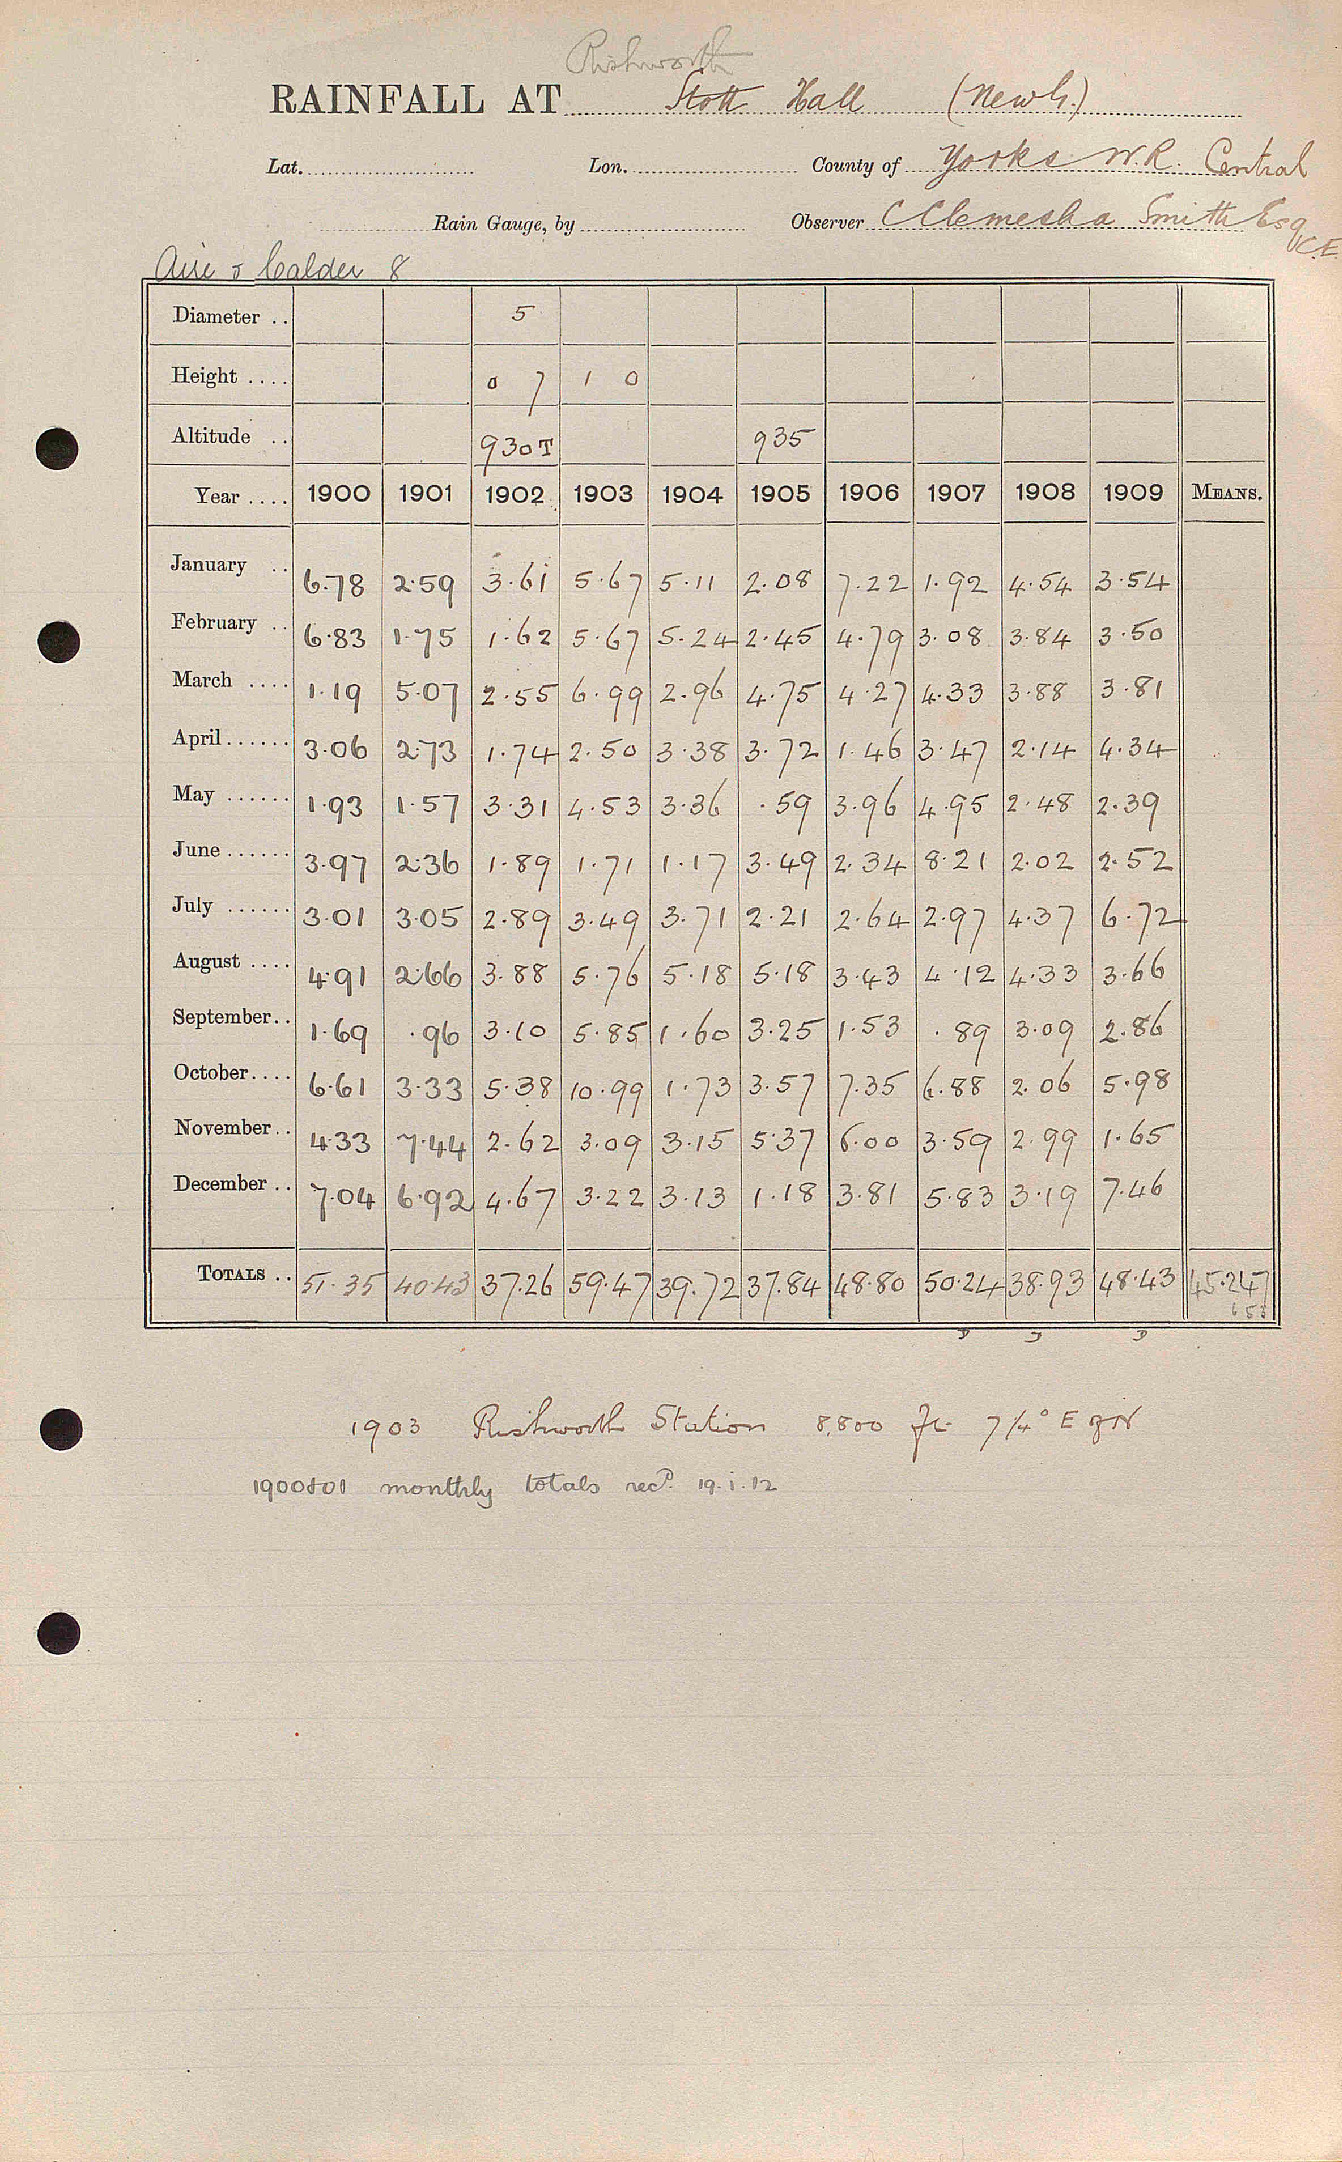 Rishworth
RAINFALL AT Stott Hall (New G.)
Lat. Lon. County of Yorks W.R. Central
Rain Gauge, by Observer C Clemesha Smith Esq C.E.
Aire & Calder 8
Diameter .. 5
Height .... 0 7 1 0
Altitude .. 930T 935
Year .... 1900 1901 1902 1903 1904 1905 1906 1907 1908 1909 MEANS.
January .. 6.78 2.59 3.61 5.67 5.11 2.08 7.22 1.92 4.54 3.54
February .. 6.83 1.75 1.62 5.67 5.24 2.45 4.79 3.08 3.84 3.50
March .... 1.19 5.07 2.55 6.99 2.96 4.75 4.27 4.33 3.88 3.81
April...... 3.06 2.73 1.74 2.50 3.38 3.72 1.46 3.47 2.14 4.34
May ...... 1.93 1.57 3.31 4.53 3.36 .59 3.96 4.95 2.48 2.39
June...... 3.97 2.36 1.89 1.71 1.17 3.49 2.34 8.21 2.02 2.52
July ...... 3.01 3.05 2.89 3.49 3.71 2.21 2.64 2.97 4.37 6.72
August .... 4.91 2.66 3.88 5.76 5.18 5.18 3.43 4.12 4.33 3.66
September.. 1.69 .96 3.10 5.85 1.60 3.25 1.53 .89 3.09 2.86
October.... 6.61 3.33 5.38 10.99 1.73 3.57 7.35 6.88 2.06 5.98
November.. 4.33 7.44 2.62 3.09 3.15 5.37 6.00 3.59 2.99 1.65
December .. 7.04 6.92 4.67 3.22 3.13 1.18 3.81 5.83 3.19 7.46
TOTALS .. 51.35 40.43 37.26 59.47 39.72 37.84 48.80 50.24 38.93 48.43 45.247
1903 Rishworth Station 8,800 ft. 7¼° E of N
1900&01 monthly totals recd. 19.i.12